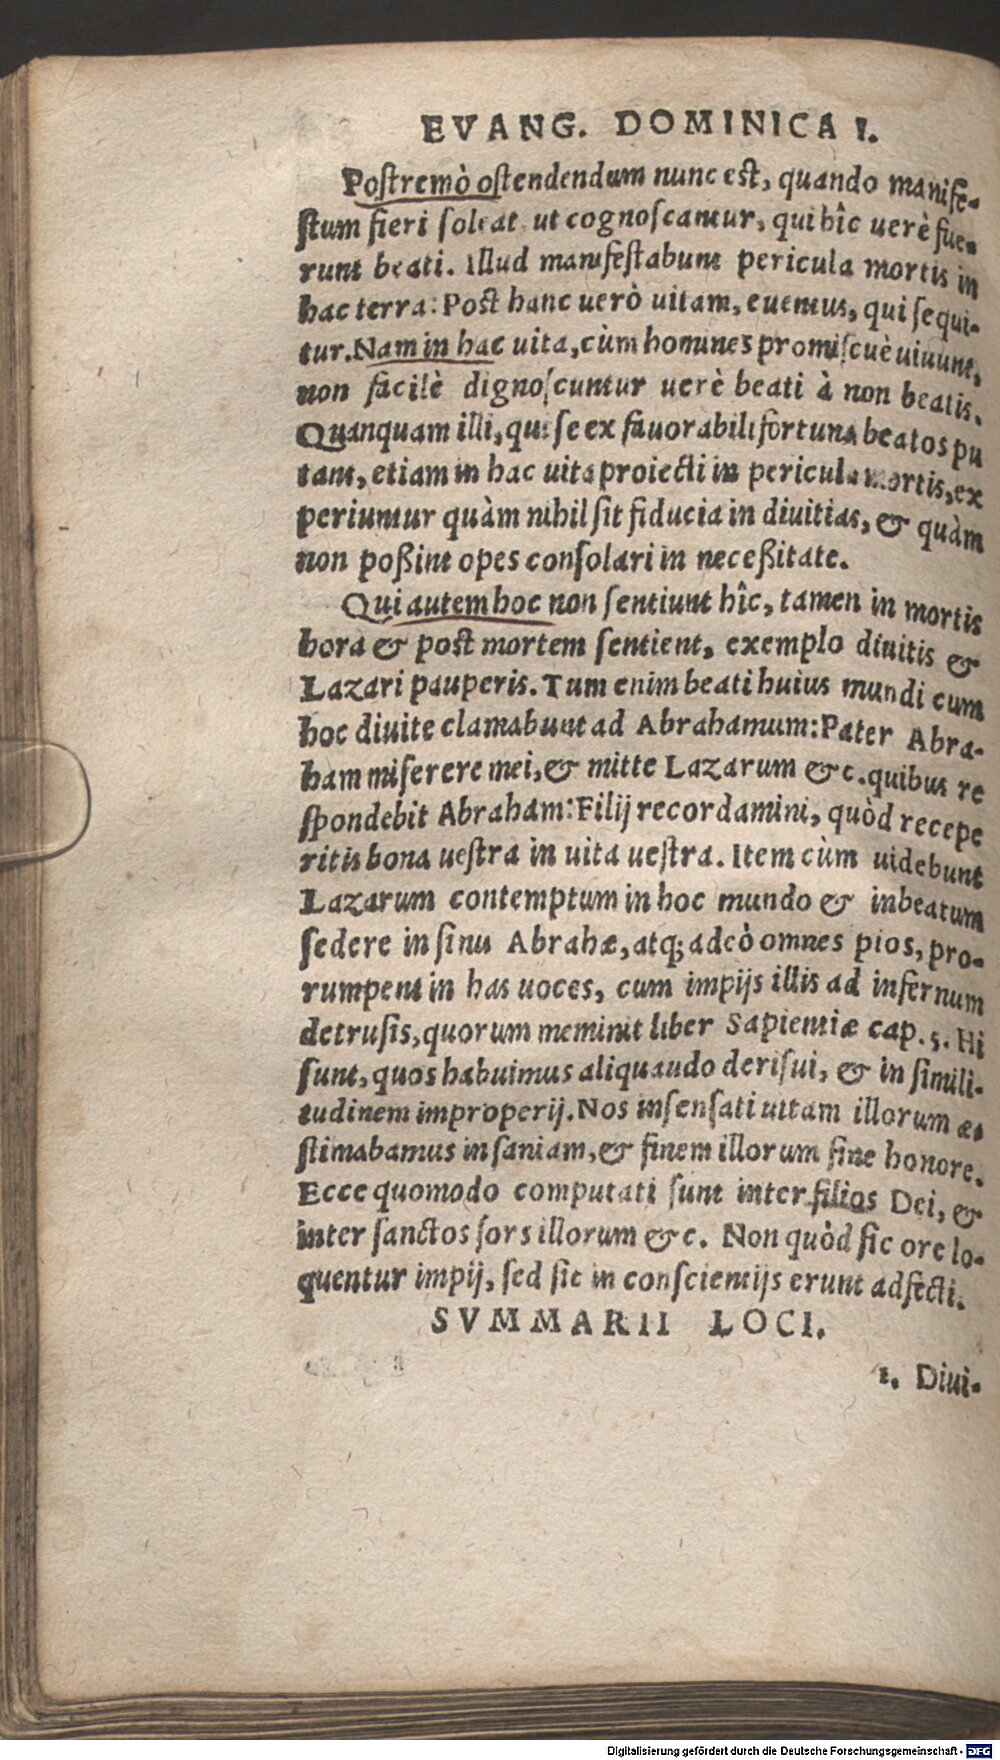 EVANG. DOMINICA I.
Postremò ostendendum nunc est, quando manife-
stum fieri soleat ut cognoscantur, qui hîc uerè fue-
runt beati. Illud manifestabunt pericula mortis in
hac terra: Post hanc uerò uitam, euentus, qui sequi-
tur. Nam in hac uita, cùm homines promiscuè uiuunt,
non facilè dignoscuntur uerè beati à non beatis.
Quanquam illi, qui se ex fauorabili fortuna beatos pu
tant, etiam in hac uita proiecti in pericula mortis, ex
periuntur quàm nihil sit fiducia in diuitias, & quàm
non poßint opes consolari in neceßitate.
Qui autem hoc non sentiunt hîc, tamen in mortis
hora & post mortem sentient, exemplo diuitis &
Lazari pauperis. Tum enim beati huius mundi cum
hoc diuite clamabunt ad Abrahamum: Pater Abra-
ham miserere mei, & mitte Lazarum &c. quibus re
spondebit Abraham: Filij recordamini, quòd recepe
ritis bona uestra in uita uestra. Item cùm uidebunt
Lazarum contemptum in hoc mundo & inbeatum
sedere in sinu Abrahæ, atq; adeò omnes pios, pro-
rumpent in has uoces, cum impijs illis ad infernum
detrusis, quorum meminit liber Sapientiæ cap. 5. Hi
sunt, quos habuimus aliquando derisui, & in simili-
tudinem improperij. Nos insensati uitam illorum æ-
stimabamus insaniam, & finem illorum sine honore.
Ecce quomodo computati sunt inter filios Dei, &
inter sanctos sors illorum &c. Non quòd sic ore lo-
quentur impij, sed sic in conscientijs erunt adfecti.
SVMMARII LOCI.
1. Diui-
Digitalisierung gefördert durch die Deutsche Forschungsgemeinschaft - DFG